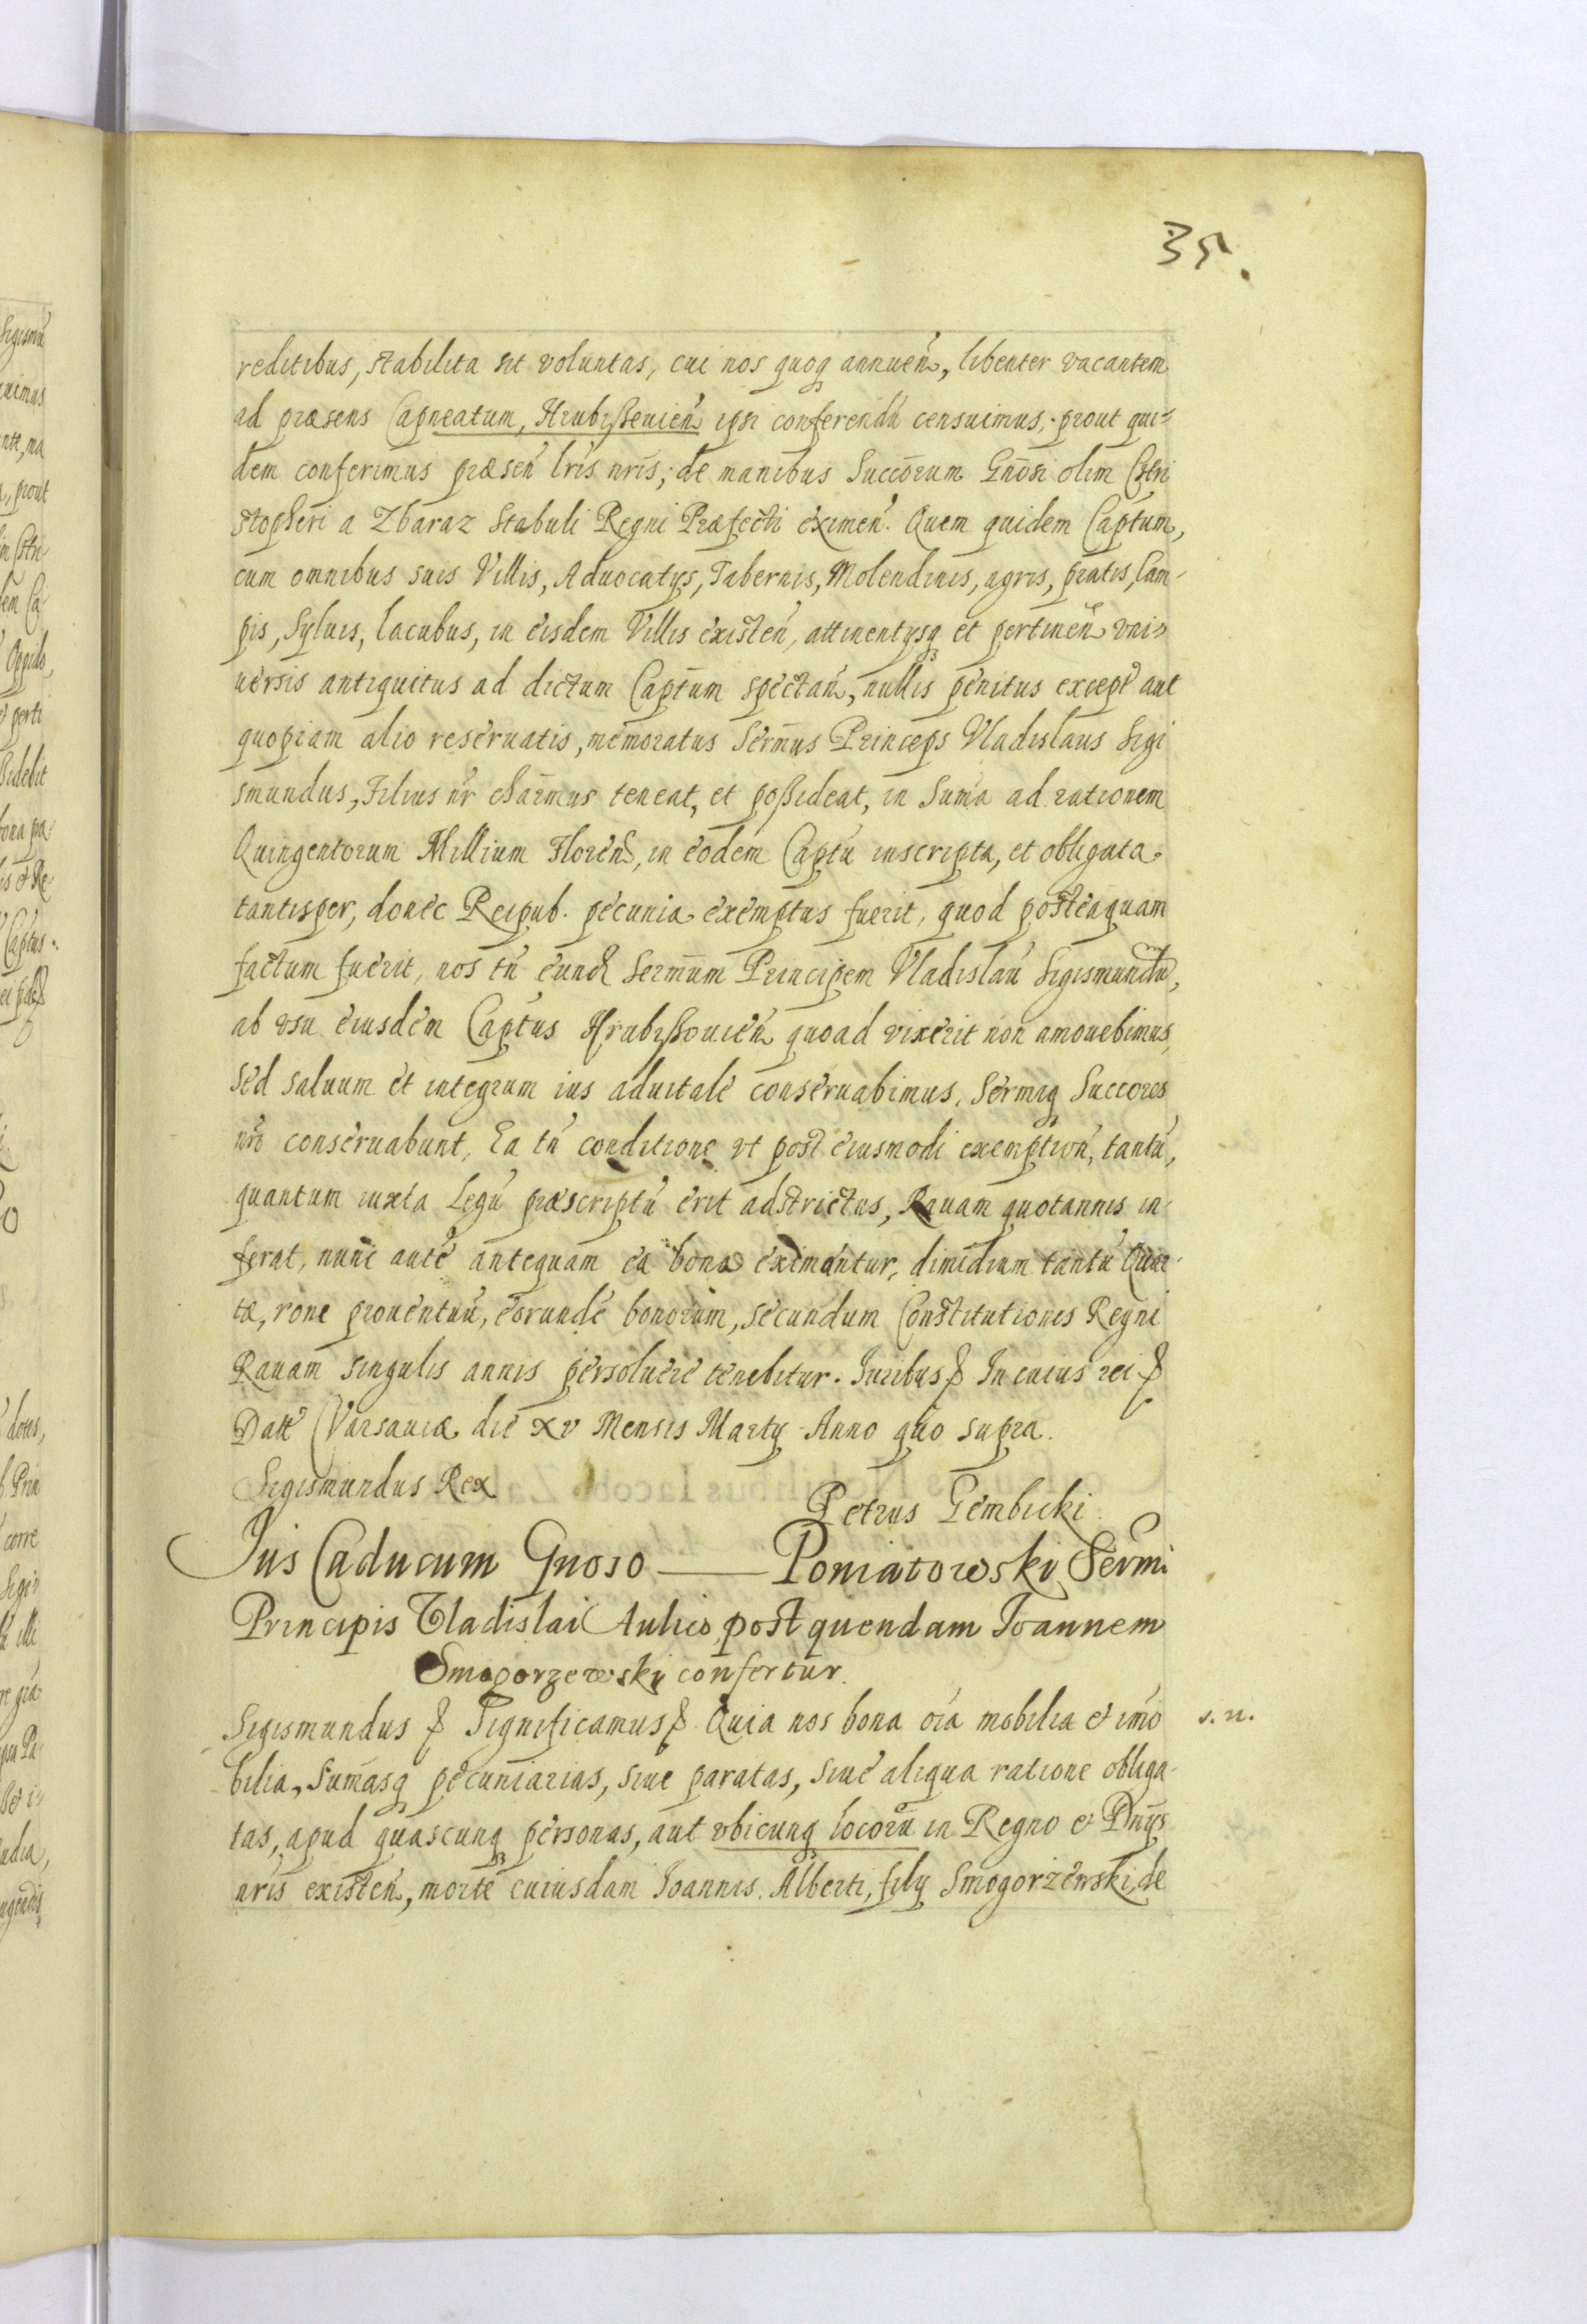 35.
reditibus, stabilita sit voluntas, cui nos quoq annuen, libenter vacantem
ad præsens Capneatum, Hrubissevien ipsi conferendū censuimus, prout qui=
dem conferimus præsen lris nris; de manibus Succorum Gnosi olim Chri
stopheri a Zbaraz Stabuli Regni Præfecti eximen. Quem quidem Captum,
cum omnibus suis Villis, Aduocatys, Tabernis, Molendinis, agris, pratis, Cam-
pis, Syluis, lacubus, in eisdem Villis existen, attinentysq et pertinen vni=
uersis antiquitus ad dictum Captum spectan, nullis penitus except aut
quopiam alio reseruatis, memoratus Sermus Princeps Vladislaus Sigi
smundus, Filius nr charmus teneat, et possideat, in Suma ad rationem
Quingentorum Millium Floren, in eodem Captu inscripta, et obligata
tantisper, donec Reipub. pecunia exemptus fuerit, quod posteaquam
factum fuerit, nos tn eund Sermum Principem Vladislaū Sigismundū,
ab vsu eiusdem Captus Hrubissouien quoad vixerit non amouebimus,
sed saluum et integrum ius aduitale conseruabimus, Sermiq Succores
nri conseruabunt, Ea tn conditione vt post eiusmodi exemption, tantū,
quantum iuxta Legū præscriptū erit adstrictus, Rauam quotannis in-
ferat, nunc autē antequam ea bona eximantur, dimidium tantū Quar-
tæ, rone prouentuū, eorundē bonorum, secundum Constitutiones Regni
Rauam singulis annis persoluere tenebitur. Iuribus & In cuius rei &
Datt Varsauiæ die xv Mensis Marty Anno quo supra.
Sigismundus Rex
Petrus Gembicki
Ius Caducum Gnoso —— Poniatowski Sermi
Principis Vladislai Aulico post quendam Ioannem
Smogorzewsky confertur.
Sigismundus & Significamus & Quia nos bona oīa mobilia et imo
s. n.
bilia, Sumasq pecuniarias, siue paratas, siue aliqua ratione obliga-
tas, apud quascunq personas, aut vbicunq locorū in Regno et Dnys
nris existen, morte cuiusdam Ioannis Alberti, fily Smogorzewski, de